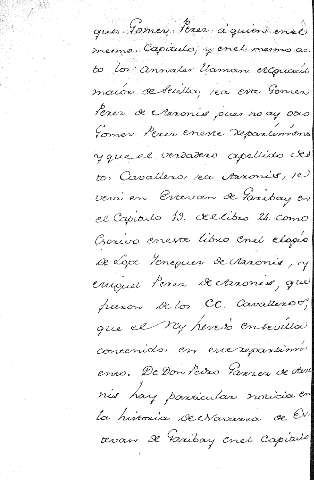 que Gomez Perez á quien en el
mesmo Capitulo, y en el mesmo ac-
to los Annales llaman
de Sevilla, sea este Gomez
Perez de Aزronis, pues no ay otro
Gomez Perez en este repartimien-
y que el verdadero apellido des-
tos Cavalleros sea Arronis, se
ve en Estevan de Garibay en
el Capitulo 13. del libro 24. como
Escrivo en este libro en el elogio
de Lope Yeneguez de Arronis, y
Miguel Perez de Arronis, que
fueron de los CC. Cavalleros,
que el Rey heredó en Sevilla
contenidos en este repartimi-
ento. De Don Pedro Garcez de Arro-
nis hay particular noticia en
la historia de Navarra de Es-
tevan de Garibay en el Capitulo